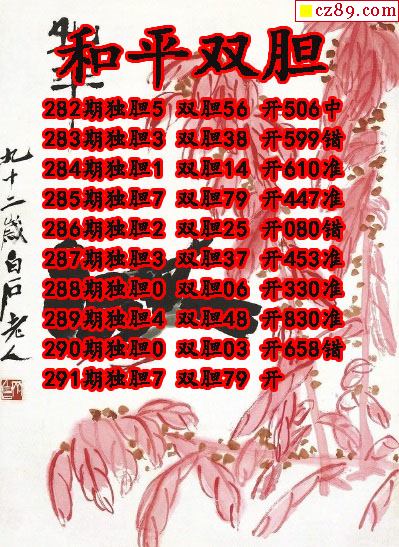 cz89.com
和平双胆
282期独胆5 双胆56 开506中
283期独胆3 双胆38 开599错
284期独胆1 双胆14 开610准
285期独胆7 双胆79 开447准
286期独胆2 双胆25 开080错
287期独胆3 双胆37 开453准
288期独胆0 双胆06 开330准
289期独胆4 双胆48 开830准
290期独胆0 双胆03 开658错
291期独胆7 双胆79 开
九十二岁白石老人